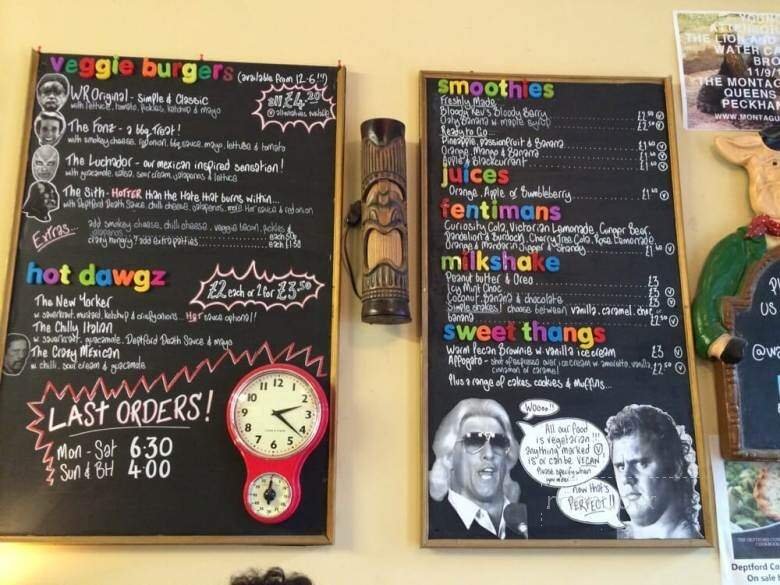 veggie burgers (available from 12-6!!)
all £4.20
WR Original - Simple & Classic
with lettuce, tomato, pickles, ketchup & mayo
The Fonz - a bbq Treat!
with smokey cheese, bbq sauce, mayo, lettuce & tomato
The Luchador - our mexican inspired sensation!
with guacamole, salsa, sour cream, jalapenos & lettuce
The Sith - HOTTER than the Hate that burns within...
with Deptford Death Sauce, chilli cheese, jalapenos, & red onion
Extras...
add smokey cheese, chilli cheese, veggie bacon, pickles &
each 50p
crazy hungry? add extra patties
each £1.50
hot dawgz
£2 each or 2 for £3.50
The New Yorker
w. sauerkraut, mustard, ketchup & Hot sauce optional!!
The Chilly Italian
w. sauerkraut, guacamole, Deptford Death Sauce & mayo
The Crazy Mexican
w. chilli, sour cream & guacamole
LAST ORDERS!
Mon - Sat 6:30
Sun & BH 4:00
12
11 1
10 2
9 3
8 4
7 6 5
smoothies
Freshly Made
Bloody Kev's Bloody Berry
Oaty Banana w. maple syrup
Ready to Go...
Pineapple, passionfruit & Banana
Orange, Mango & Banana
Apple & Blackcurrant
juices
Orange, Apple or Bumbleberry
fentimans
Curiosity Cola, Victorian Lemonade, Ginger Beer,
Dandelion & Burdock, Cherry Tree Cola, Rose Lemonade,
Orange & Mandarin Jigger & Shandy
milkshake
Peanut butter & Oreo £3
Icy Mint Choc £3
Coconut, Banana & chocolate £3
Simple shakes! choose between vanilla, caramel, choc or
banana £2.50 V
sweet thangs
Warm Pecan Brownie w. vanilla ice cream £3 V
Affogato - shot of espresso over ice cream w. amaretto, vanilla,
cinnamon or caramel £2.50 V
Plus a range of cakes, cookies & muffins...
Wooo!!
All our food
is vegetarian!!!
anything marked V
is or can be VEGAN
Please specify when
you order...
...now that's
PERFECT!!
THE LION AND
WATER C
BRO
11/9/
THE MONTAG
QUEENS
PECKHA
WWW.MONTAGU
US
@wa
Deptford Co
On sale